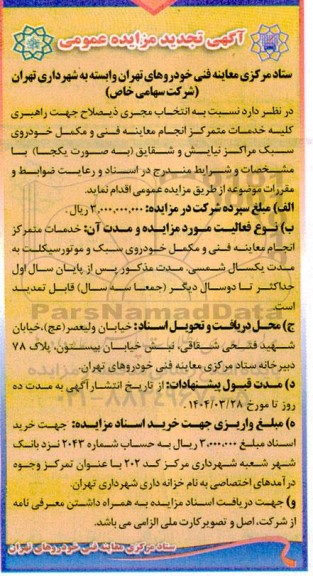 آگهی تجدید مزایده عمومی
ستاد مرکزی معاینه فنی خودروهای تهران وابسته به شهرداری تهران
(شرکت سهامی خاص)
در نظر دارد نسبت به انتخاب مجری ذیصلاح جهت راهبری
کلیه خدمات متمرکز انجام معاینه فنی و مکمل خودروی
سبک مراکز نیایش و شقایق (به صورت یکجا) با
مشخصات و شرایط مندرج در اسناد و رعایت ضوابط و
مقررات موضوعه از طریق مزایده عمومی اقدام نماید.
الف) مبلغ سپرده شرکت در مزایده: ۳,۰۰۰,۰۰۰,۰۰۰ ریال.
ب) نوع فعالیت مورد مزایده و مدت آن: خدمات متمرکز
انجام معاینه فنی و مکمل خودروی سبک و موتورسیکلت به
مدت یکسال شمسی. مدت مذکور پس از پایان سال اول
حداکثر تا دوسال دیگر (جمعا سه سال) قابل تمدید
است.
ParsNamadData
ج) محل دریافت و تحویل اسناد: خیابان ولیعصر(عج)،خیابان
شهید فتحی شقاقی، نبش خیابان بیستون، پلاک ۷۸
دبیرخانه ستاد مرکزی معاینه فنی خودروهای تهران.
د) مدت قبول پیشنهادات: از تاریخ انتشار آگهی به مدت ده
روز تا مورخ ۱۴۰۴/۰۳/۲۸.
ه) مبلغ واریزی جهت خرید اسناد مزایده: جهت خرید
اسناد مبلغ ۳,۰۰۰,۰۰۰ ریال به حساب شماره ۲۰۴۳ نزد بانک
شهر شعبه شهرداری مرکز کد ۲۰۲ با عنوان تمرکز وجوه
درآمدهای اختصاصی به نام خزانه داری شهرداری تهران.
و) جهت دریافت اسناد مزایده به همراه داشتن معرفی نامه
از شرکت، اصل و تصویر کارت ملی الزامی می باشد.
ستاد مرکزی معاینه فنی خودروهای تهران